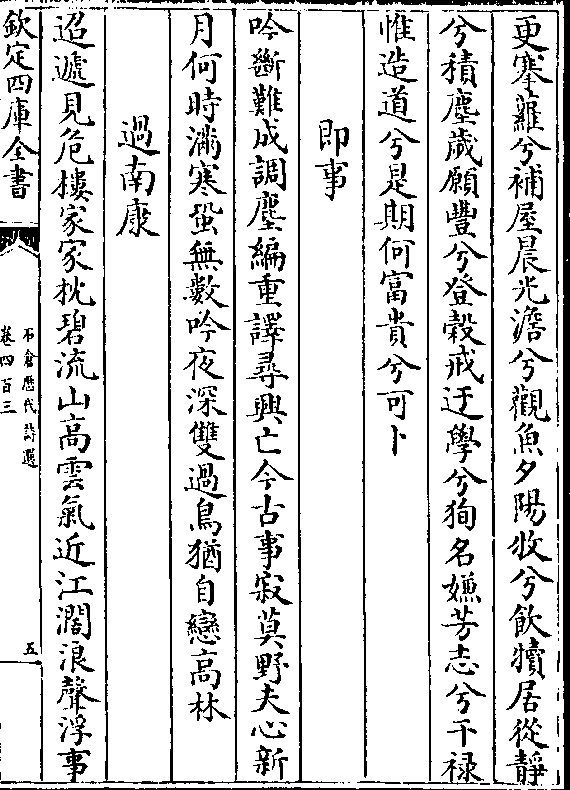 更搴蘿兮補屋晨光澹兮觀魚夕陽牧兮飲犢居從靜
兮積塵歲願豐兮登榖戒迂學兮狥名嫌芳志兮干禄
惟造道兮是期何富貴兮可卜
即事
吟斷難成調塵編重譯尋興亡今古事寂莫野夫心新
月何時滿寒蛩無數吟夜深雙過鳥猶自戀高林
過南康
迢遞見危樓家家枕碧流山高雲氣近江濶浪聲浮事
欽定四庫全書
石倉歷代詩選
卷四百三
五